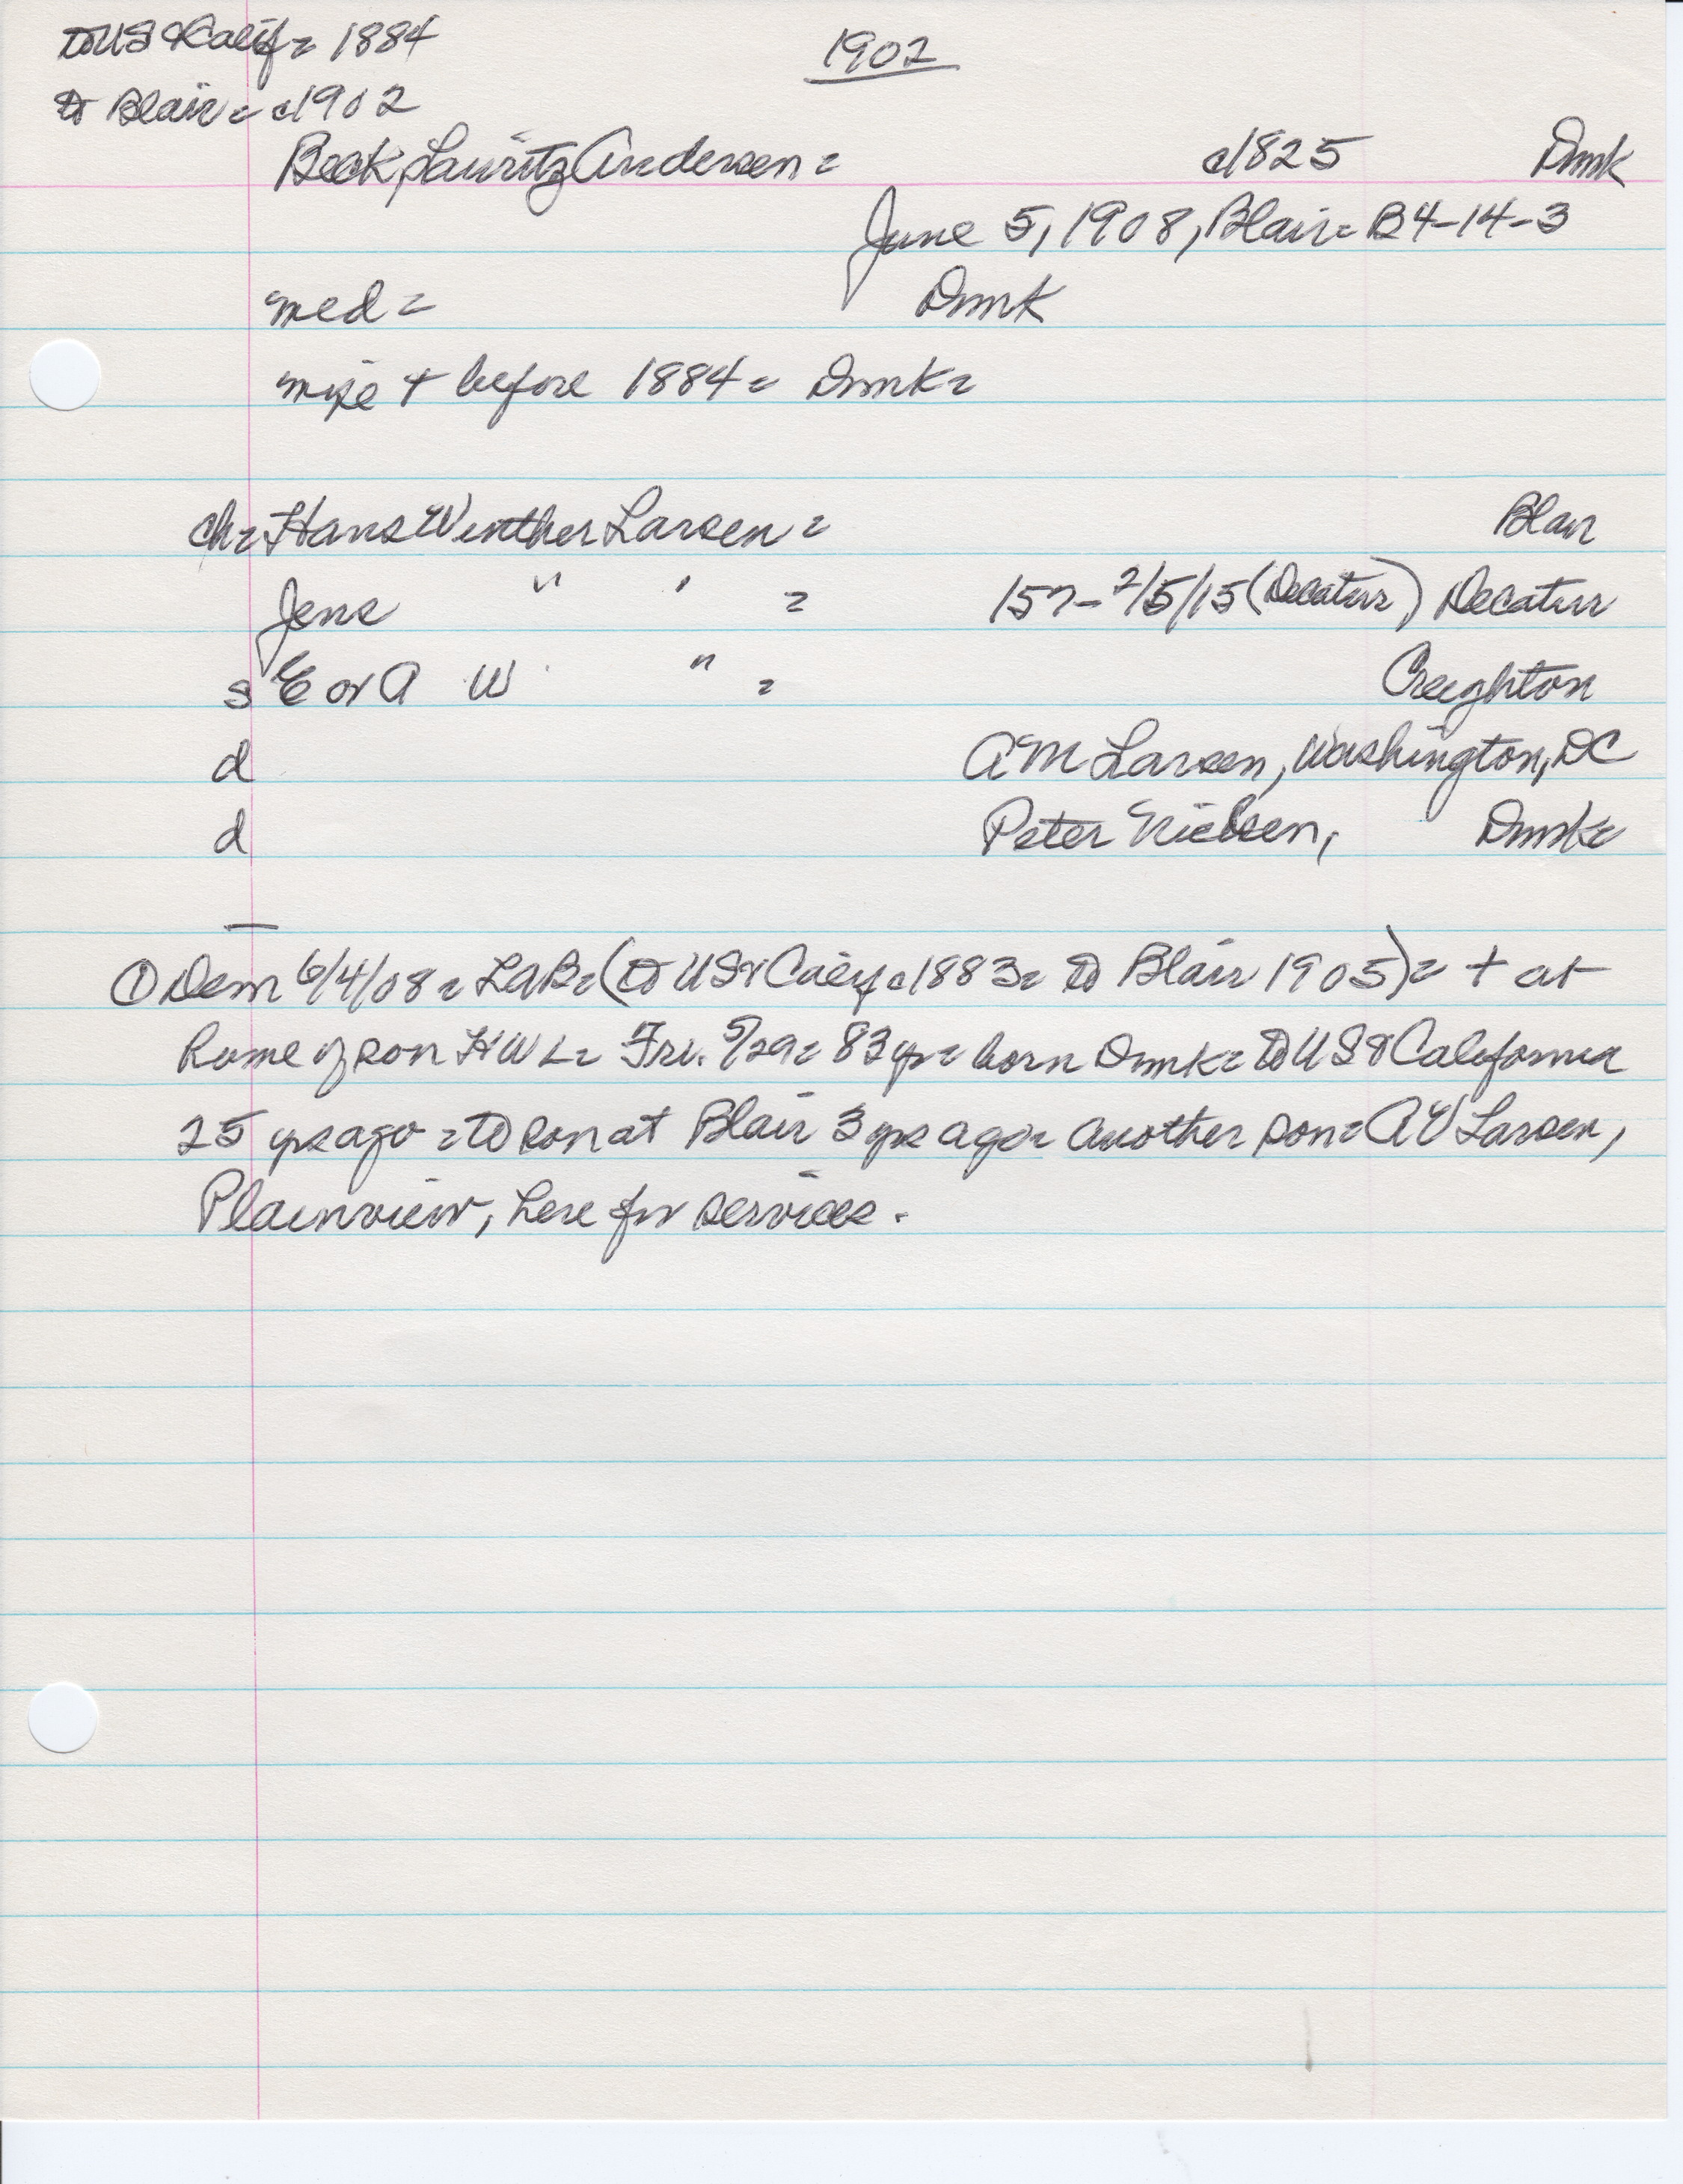 To US & Calif = 1884
1902
To Blair = c1902
Beck, Lauritz Andersen = c1825 Dmk
June 5, 1908, Blair = B4-14-3
med = Dmk
wife + before 1884 = Dmk =
ch = Hans Winther Larsen = Blair
Jens " " = 157-2/5/15 (Decatur) Decatur
s E or A W " = Creighton
d AM Larsen, Washington, DC
d Peter Nielsen, Dmk =
① Dem 6/4/08 = LAB = (To US & Calif c1883 = To Blair 1905) = + at
home of son HWL = Fri. 5/29 = 83 yr = born Dmk = To US & California
25 yrs ago = To son at Blair 3 yrs ago = another son = AW Larsen,
Plainview, here for services.